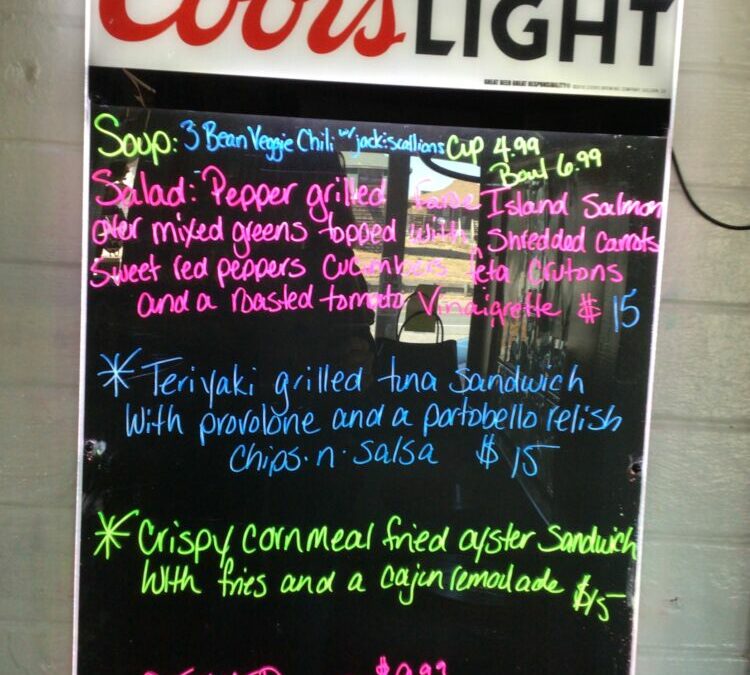 Coors LIGHT
GREAT BEER GREAT RESPONSIBILITY®
Soup: 3 Bean Veggie Chili w/ jack&scallions Cup 4.99
Bowl 6.99
Salad: Pepper grilled Faroe Island Salmon
over mixed greens topped with Shredded Carrots
Sweet red peppers Cucumbers feta Crutons
and a roasted tomato Vinaigrette $15
* Teriyaki grilled tuna sandwich
With provolone and a portobello relish
Chips·n·Salsa $15
* Crispy cornmeal fried oyster Sandwich
With fries and a cajun remoulade $15